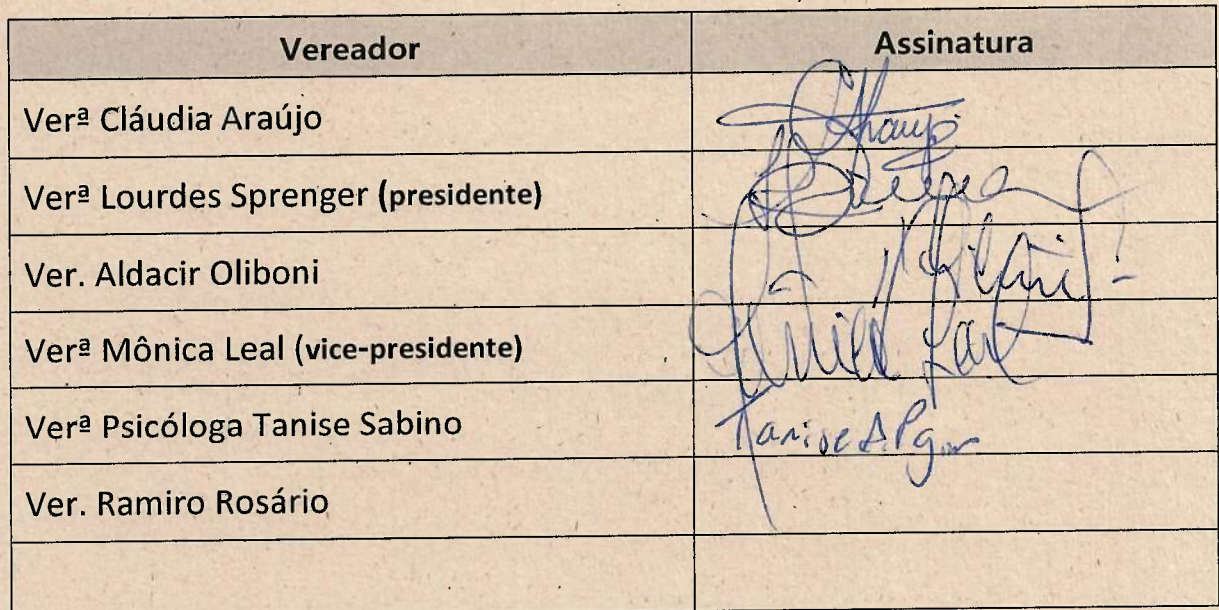 Vereador Assinatura
Verª Cláudia Araújo
Verª Lourdes Sprenger (presidente)
Ver. Aldacir Oliboni
Verª Mônica Leal (vice-presidente)
Verª Psicóloga Tanise Sabino Tanise
Ver. Ramiro Rosário